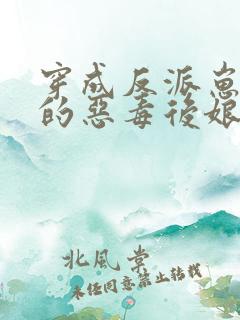 穿成反派崽
的惡毒後娘
北風棠
未经同意禁止转载